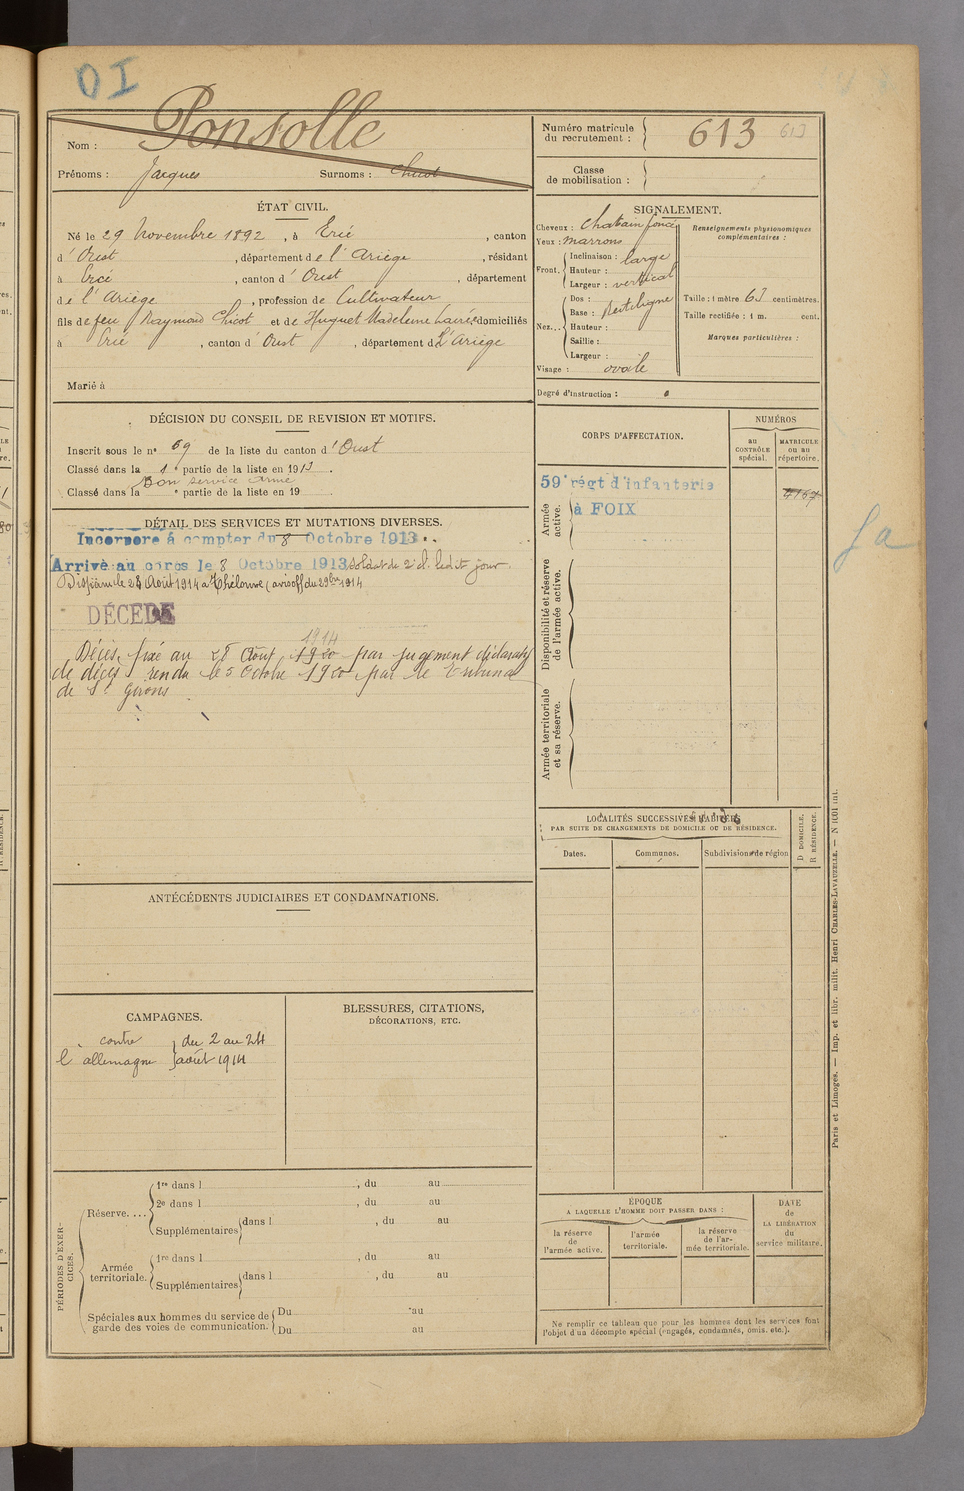 DI
Nom : Ponsolle
Prénoms : Jacques Surnoms : Chicot
Numéro matricule du recrutement : 613 613
Classe de mobilisation :
ÉTAT CIVIL.
Né le 29 Novembre 1892, à Ercé, canton
d'Oust, département de l'Ariège, résidant
à Ercé, canton d'Oust, département
de l'Ariège, profession de Cultivateur
fils de feu Raymond Chicot et de Huguet Madeleine domiciliés
à Ercé, canton d'Oust, département de L'Ariège
Marié à
SIGNALEMENT.
Cheveux : chatain foncé
Yeux : marrons
Front. Inclinaison : large
Hauteur :
Largeur : vertical
Nez... Dos : Rectiligne
Base :
Hauteur :
Saillie :
Largeur :
Visage : ovale
Renseignements physionomiques complémentaires :
Taille : 1 mètre 63 centimètres.
Taille rectifiée : 1 m. cent.
Marques particulières :
Degré d'instruction :
DÉCISION DU CONSEIL DE REVISION ET MOTIFS.
Inscrit sous le n° 69 de la liste du canton d'Oust
Classé dans la 1e partie de la liste en 1913.
Bon service armé
Classé dans la e partie de la liste en 19
DÉTAIL DES SERVICES ET MUTATIONS DIVERSES.
Incorporé à compter du 8 Octobre 1913
Arrivé au corps le 8 Octobre 1913 Soldat de 2e cl. ledit jour.
Disparu le 28 Août 1914 à Thélonne (avis off du 29bre 1914
DÉCÉDÉ
1914
Décès fixé au 28 Août 1920 par jugement déclaratif
de décès rendu le 5 Octobre 1920 par le Tribunal
de St Girons
CORPS D'AFFECTATION.
NUMÉROS
au CONTRÔLE spécial.
MATRICULE ou au répertoire.
Armée active.
59e régt d'infanterie
à FOIX
4167
fa
Disponibilité et réserve de l'armée active.
Armée territoriale et sa réserve.
LOCALITÉS SUCCESSIVES HABITÉES
PAR SUITE DE CHANGEMENTS DE DOMICILE OU DE RÉSIDENCE.
Dates. Communes. Subdivision de région
D DOMICILE. R RÉSIDENCE.
ANTÉCÉDENTS JUDICIAIRES ET CONDAMNATIONS.
CAMPAGNES.
contre du 2 au 24
l'allemagne août 1914
BLESSURES, CITATIONS,
DÉCORATIONS, ETC.
PÉRIODES D'EXERCICES.
Réserve....
1re dans l , du au
2e dans l , du au
Supplémentaires dans l , du au
Armée territoriale.
1re dans l , du au
Supplémentaires dans l , du au
Spéciales aux hommes du service de garde des voies de communication.
Du au
Du au
ÉPOQUE
A LAQUELLE L'HOMME DOIT PASSER DANS :
la réserve de l'armée active.
l'armée territoriale.
la réserve de l'armée territoriale.
DATE de LA LIBÉRATION du service militaire.
Ne remplir ce tableau que pour les hommes dont les services font
l'objet d'un décompte spécial (engagés, condamnés, omis, etc.).
Paris et Limoges. — Imp. et libr. milit. Henri CHARLES-LAVAUZELLE. —